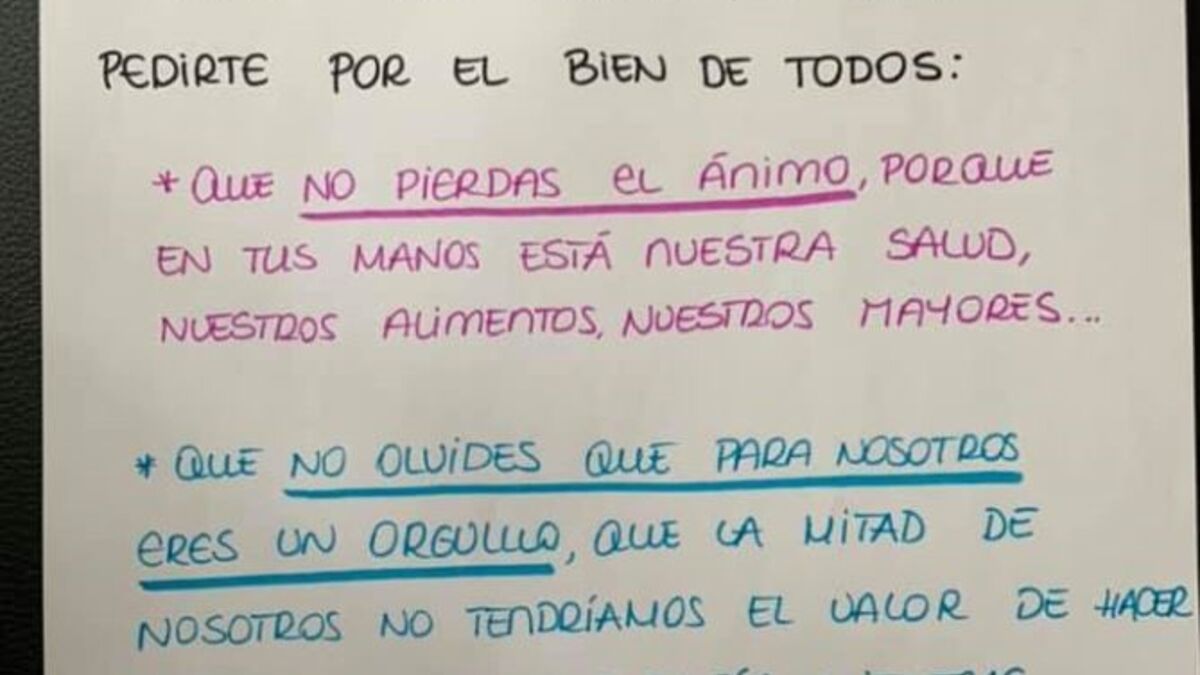 PEDIRTE POR EL BIEN DE TODOS:
* QUE NO PIERDAS EL ÁNIMO, PORQUE
EN TUS MANOS ESTÁ NUESTRA SALUD,
NUESTROS ALIMENTOS, NUESTROS MAYORES...
* QUE NO OLVIDES QUE PARA NOSOTROS
ERES UN ORGULLO, QUE LA MITAD DE
NOSOTROS NO TENDRÍAMOS EL VALOR DE HACER